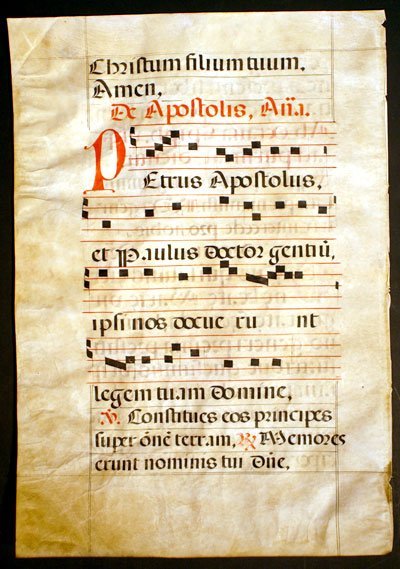 Christum filium tuum.
Amen.
De Apostolis, Aña.
PEtrus Apostolus,
et Paulus doctor gentiũ,
ipsi nos docue ru nt
legem tuam Domine.
℣. Constitues eos principes
super õnẽ terram, ℟. Memores
erunt nominis tui Dñe.